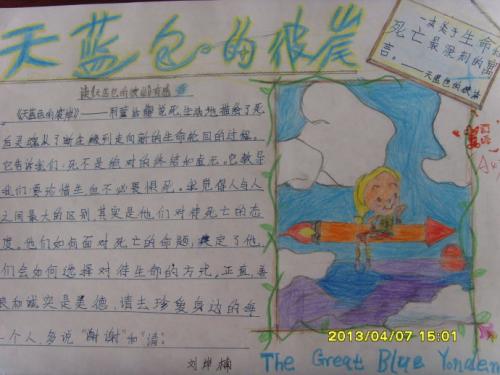 天蓝色的彼岸
一本关于生命和
死亡最深刻的寓
言。
——天蓝色的彼岸
读《天蓝色的彼岸》有感
《天蓝色的彼岸》——用童话解说死,生动地描绘了死
后灵魂从了断尘缘到走向新的生命轮回的过程。
它告诉我们:死不是绝对的终结和虚无。它教导
我们要珍惜生而不必要惧死。我觉得人与人
之间最大的区别,其实是他们对待死亡的态
度。他们如何面对死亡的命题,决定了他
们会如何选择对待生命的方式。正直,善
良和诚实是美德,请去珍爱身边的每
一个人,多说“谢谢”和“请”
刘烨楠
The Great Blue Yonder
2013/04/07 15:01